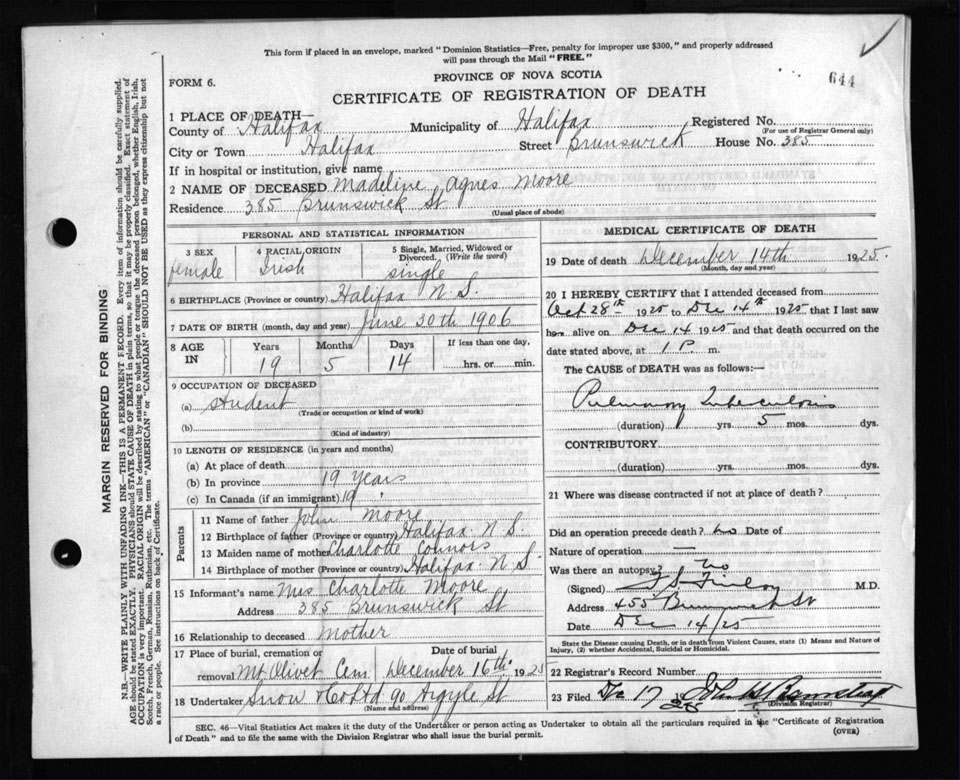 This form if placed in an envelope, marked "Dominion Statistics—Free, penalty for improper use $300," and properly addressed
will pass through the Mail "FREE."
644
FORM 6.
PROVINCE OF NOVA SCOTIA
CERTIFICATE OF REGISTRATION OF DEATH
1 PLACE OF DEATH—
County of Halifax Municipality of Halifax Registered No.
(For use of Registrar General only)
City or Town Halifax Street Brunswick House No. 385
If in hospital or institution, give name
2 NAME OF DECEASED Madeline Agnes Moore
Residence 385 Brunswick St
(Usual place of abode)
PERSONAL AND STATISTICAL INFORMATION
3 SEX 4 RACIAL ORIGIN 5 Single, Married, Widowed or
Divorced. (Write the word)
female Irish single
6 BIRTHPLACE (Province or country) Halifax N.S.
7 DATE OF BIRTH (month, day and year) June 30th 1906
8 AGE IN Years Months Days If less than one day,
19 5 14 hrs. or min.
9 OCCUPATION OF DECEASED
(a) student
(Trade or occupation or kind of work)
(b)
(Kind of industry)
10 LENGTH OF RESIDENCE (in years and months)
(a) At place of death
(b) In province 19 Years
(c) In Canada (if an immigrant) 19 "
Parents
11 Name of father John Moore
12 Birthplace of father (Province or country) Halifax N S
13 Maiden name of mother Charlotte Connors
14 Birthplace of mother (Province or country) Halifax N.S.
15 Informant's name Mrs Charlotte Moore
Address 385 Brunswick St
16 Relationship to deceased Mother
17 Place of burial, cremation or removal Date of burial
Mt Olivet Cem December 16th 1925
18 Undertaker Snow & Co Ltd 90 Argyle St
(Name and address)
MEDICAL CERTIFICATE OF DEATH
19 Date of death December 14th 1925.
(Month, day and year)
20 I HEREBY CERTIFY that I attended deceased from
Oct 28th 1925 to Dec 14th 1925 that I last saw
her alive on Dec 14 1925 and that death occurred on the
date stated above, at 1 P. m.
The CAUSE of DEATH was as follows:—
Pulmonary Tuberculosis
(duration) yrs. 5 mos. dys.
CONTRIBUTORY
(duration) yrs. mos. dys.
21 Where was disease contracted if not at place of death?
Did an operation precede death? no Date of
Nature of operation —
Was there an autopsy? No
(Signed) M.D.
Address 455 Brunswick St
Date Dec 14/25
State the Disease causing Death, or in death from Violent Causes, state (1) Means and Nature of
Injury, (2) whether Accidental, Suicidal or Homicidal.
22 Registrar's Record Number
23 Filed Dec 17 1925
(Division Registrar)
SEC. 46—Vital Statistics Act makes it the duty of the Undertaker or person acting as Undertaker to obtain all the particulars required in the "Certificate of Registration
of Death" and to file the same with the Division Registrar who shall issue the burial permit.
(OVER)
MARGIN RESERVED FOR BINDING
N.B.—WRITE PLAINLY WITH UNFADING INK—THIS IS A PERMANENT RECORD. Every item of information should be carefully supplied.
AGE should be stated EXACTLY. PHYSICIANS should STATE CAUSE OF DEATH in plain terms, so that it may be properly classified. Exact statement of
OCCUPATION is very important. RACIAL ORIGIN will be described by stating to what people or tongue the deceased person belonged, whether English, Irish,
Scotch, French, German, Russian, Ruthenian, etc. The terms "AMERICAN" or "CANADIAN" SHOULD NOT BE USED as they express citizenship but not
a race or people. See instructions on back of Certificate.